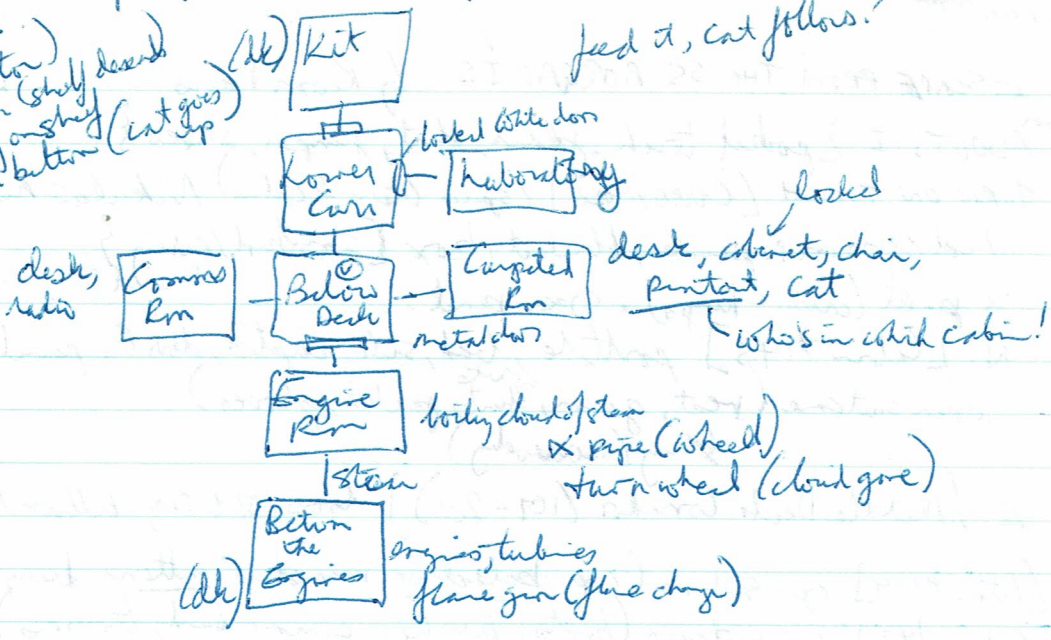 feed it, cat follows!
(shelf descends
on shelf
button (cat goes up)
(dk) Kit
locked white door
Lower Corr
Laboratory
locked
desk, radio
Comms Rm
Below Deck
Carpeted Rm
desk, cabinet, chair,
printout, cat
who's in which cabin!
metal door
Engine Rm
boiling cloud of steam
x pipe (wheel)
turn wheel (cloud gone)
steam
(dk)
Betwn the Engines
engines, turbines
flare gun (flare charge)